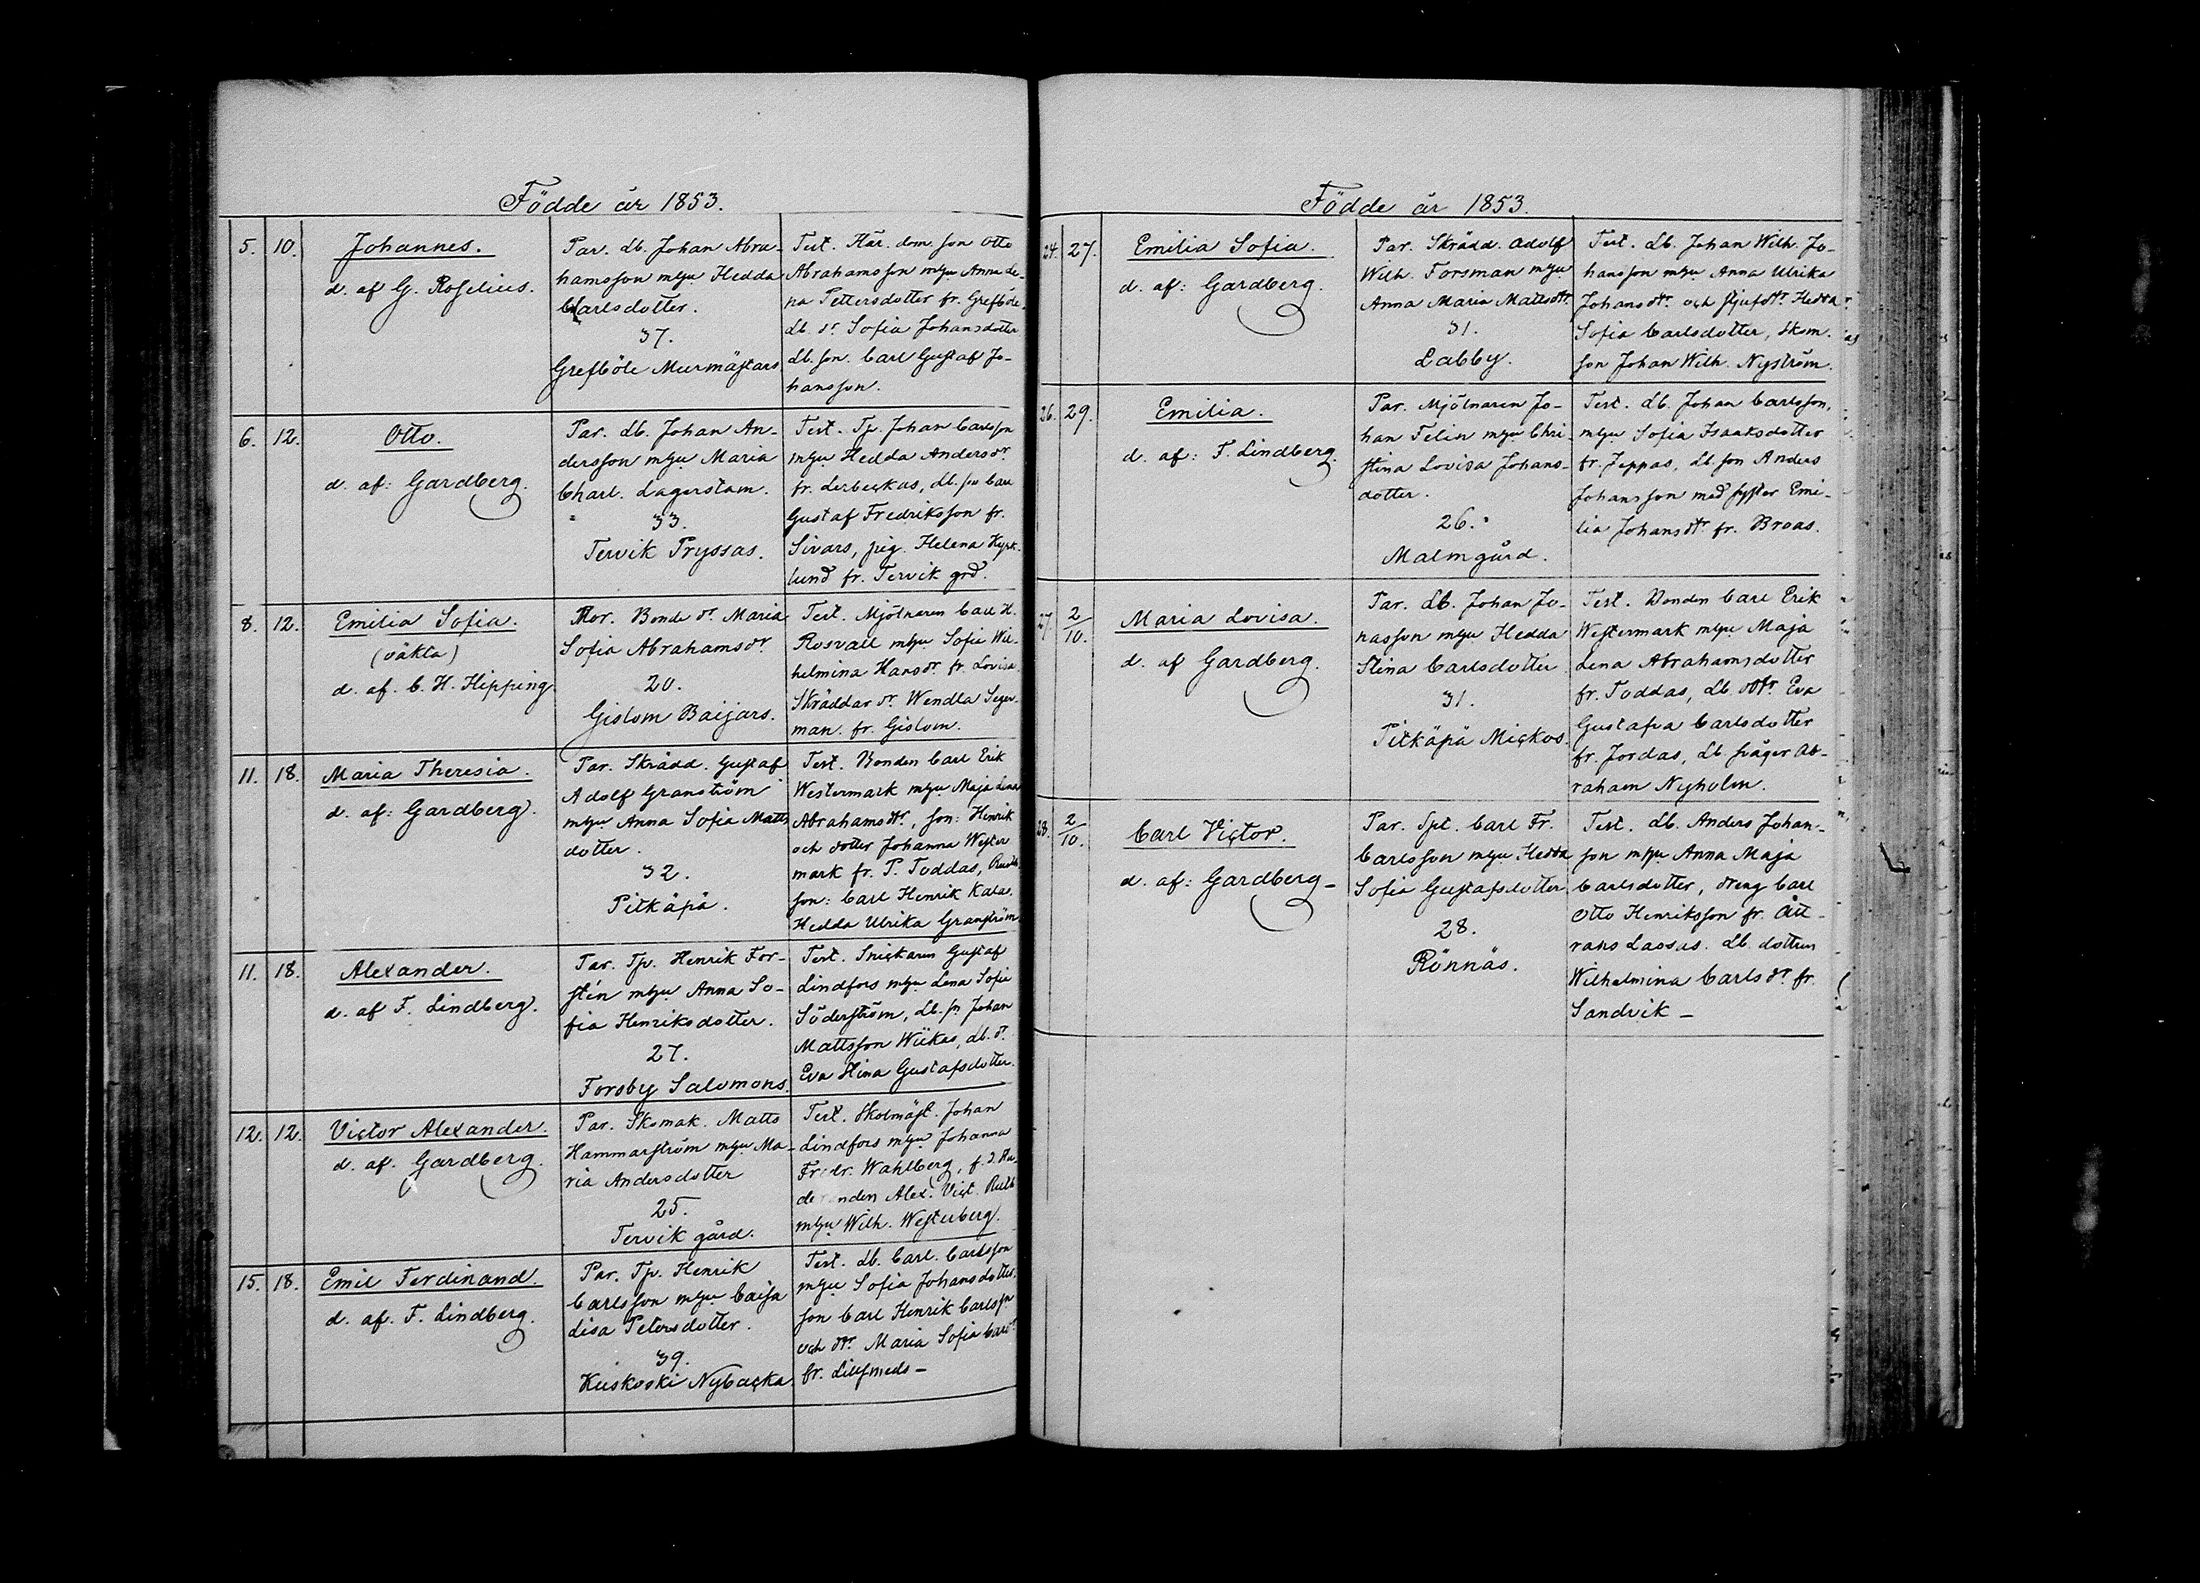 Födde år 1853.
5. 10. Johannes.
d. af G. Roselius.
Par. Lb. Johan Abra-
hamsson m hu Hedda
Carlsdotter.
37.
Grefböle Murmästars
Test. Här. dom. son Otto
Abrahamsson m hu Anna Le-
na Pettersdotter fr. Grefböle.
Lb. dr. Sofia Johansdotter
Lb. son. Carl Gustaf Jo-
hansson.
6. 12. Otto.
d. af: Gardberg.
Par. Lb. Johan An-
dersson m hu Maria
Charl. Lagerstam.
33.
Tervik Pryssas.
Test. Tp. Johan Carlsson
m hu Hedda Andersdr.
fr. Lerbeckas, Lb. son Carl
Gustaf Fredriksson fr.
Sivars, pig. Helena Kyrk-
lund fr. Tervik grd.
8. 12. Emilia Sofia.
(oäkta)
d. af. C. H. Hipping
Mor. Bonde dr. Maria
Sofia Abrahamsdr.
20.
Gislom Baijars.
Test. Mjölnaren Carl H.
Rosvall m hu Sofia Wil-
helmina Hansdr. fr. Lovisa
Skräddar dr. Wendla Seger-
man fr. Gislom.
11. 18. Maria Theresia.
d. af: Gardberg.
Par. Skrädd. Gustaf
Adolf Granström
m hu Anna Sofia Matts
dotter.
32.
Pitkäpä.
Test. Bonden Carl Erik
Westermark m hu Maja Lena
Abrahamsdr., son: Henrik
och dotter Johanna Wester
mark fr. P. Toddas,
son: Carl Henrik
Hedda Ulrika Granström
11. 18. Alexander.
d. af F. Lindberg.
Par. Tp. Henrik For-
stén m hu Anna So-
fia Henriksdotter.
27.
Forsby Salomons.
Test. Snickaren Gustaf
Lindfors m hu Lena Sofia
Söderström, Lb. sn Johan
Mattsson Wiikas, Lb. dr.
Eva Stina Gustafsdotter.
12. 12. Victor Alexander.
d. af. Gardberg.
Par. Skomak. Matts
Hammarström m hu Ma-
ria Andersdotter
25.
Tervik gård.
Test. Skolmäst. Johan
Lindfors m hu Johanna
Fredr. Wahlberg, f. d.
Alex. Vict.
m hu Wilh. Westerberg.
15. 18. Emil Ferdinand.
d. af. F. Lindberg.
Par. Tp. Henrik
Carlsson m hu Caisa
Lisa Petersdotter.
39.
Kuskoski Nybacka.
Test. Lb. Carl Carlsson
m hu Sofia Johansdotter,
son Carl Henrik Carlsson
och dtr. Maria Sofia Carlsdr.
fr. Lillsmeds –
Födde år 1853.
24. 27. Emilia Sofia.
d. af: Gardberg.
Par. Skrädd. Adolf
Wilh. Forsman m hu
Anna Maria Mattsdtr.
31.
Labby.
Test. Lb. Johan Wilh. Jo-
hansson m hu Anna Ulrika
Johansdtr. och styfdtr. Hedda
Sofia Carlsdotter, skom.
son Johan Wilh. Nyström.
26. 29. Emilia.
d. af: F. Lindberg.
Par. Mjölnaren Jo-
han Felin m hu Chri-
stina Lovisa Johans-
dotter.
26.
Malmgård.
Test. Lb. Johan Carlsson,
m hu Sofia Isaaksdotter
fr. Jeppas, Lb son Anders
Johansson med syster Emi-
lia Johansdtr. fr. Broas.
27. 2/10. Maria Lovisa.
d. af Gardberg.
Par. Lb. Johan Jo-
nasson m hu Hedda
Stina Carlsdotter
31.
Pitkäpä Mickos.
Test. Bonden Carl Erik
Westermark m hu Maja
Lena Abrahamsdotter
fr. Toddas, Lb. dttr. Eva
Gustafva Carlsdotter
fr. Jordas, Lb svåger Ab-
raham Nyholm.
28. 2/10. Carl Victor.
d. af: Gardberg –
Par. Spt. Carl Fr.
Carlsson m hu Hedda
Sofia Gustafsdotter
28.
Rönnäs.
Test. Lb. Anders Johan-
son m hu Anna Maja
Carlsdotter, dreng Carl
Otto Henriksson fr. Ått-
rans Lassas. Lb. dottren
Wilhelmina Carlsdr. fr.
Sandvik –